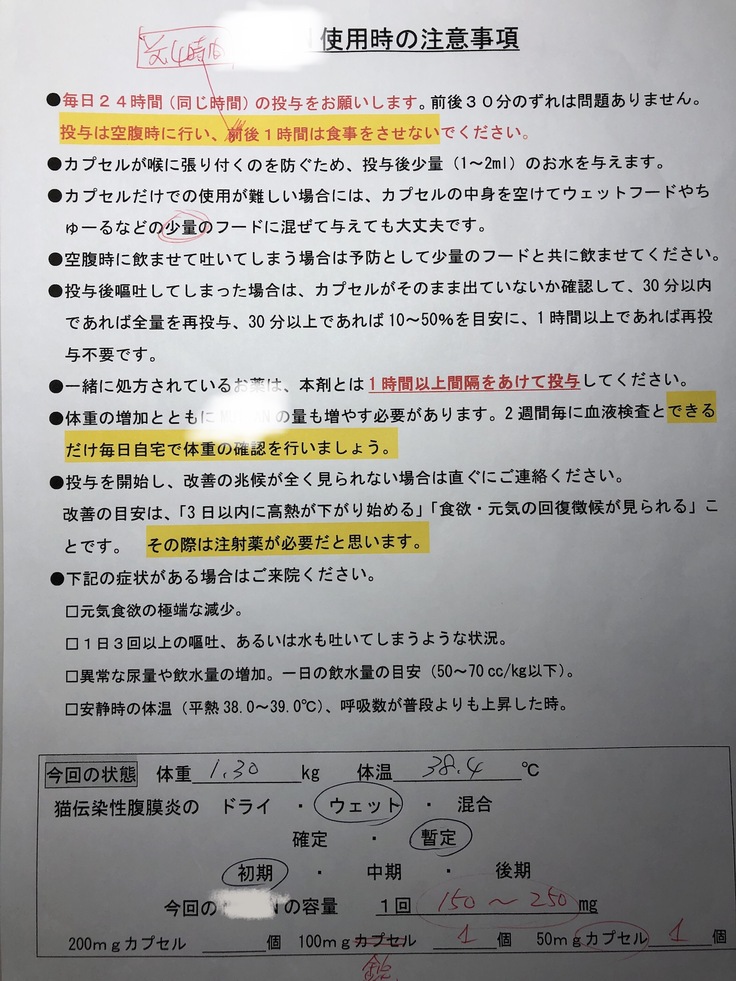 4時間
使用時の注意事項
●毎日24時間（同じ時間）の投与をお願いします。前後30分のずれは問題ありません。
投与は空腹時に行い、前後1時間は食事をさせないでください。
●カプセルが喉に張り付くのを防ぐため、投与後少量（1～2ml）のお水を与えます。
●カプセルだけでの使用が難しい場合には、カプセルの中身を空けてウェットフードやち
ゅーるなどの少量のフードに混ぜて与えても大丈夫です。
●空腹時に飲ませて吐いてしまう場合は予防として少量のフードと共に飲ませてください。
●投与後嘔吐してしまった場合は、カプセルがそのまま出ていないか確認して、30分以内
であれば全量を再投与、30分以上であれば10～50%を目安に、1時間以上であれば再投
与不要です。
●一緒に処方されているお薬は、本剤とは1時間以上間隔をあけて投与してください。
●体重の増加とともに の量も増やす必要があります。2週間毎に血液検査とできる
だけ毎日自宅で体重の確認を行いましょう。
●投与を開始し、改善の兆候が全く見られない場合は直ぐにご連絡ください。
改善の目安は、「3日以内に高熱が下がり始める」「食欲・元気の回復徴候が見られる」こ
とです。 その際は注射薬が必要だと思います。
●下記の症状がある場合はご来院ください。
□元気食欲の極端な減少。
□1日3回以上の嘔吐、あるいは水も吐いてしまうような状況。
□異常な尿量や飲水量の増加。一日の飲水量の目安（50～70cc/kg以下）。
□安静時の体温（平熱38.0～39.0℃）、呼吸数が普段よりも上昇した時。
今回の状態 体重 1.30 kg 体温 38.4 ℃
猫伝染性腹膜炎の ドライ ・ ウェット ・ 混合
確定 ・ 暫定
初期 ・ 中期 ・ 後期
今回の Nの容量 1回 150～250 mg
200mgカプセル 個 100mgカプセル 1 個 50mgカプセル 1 個
錠